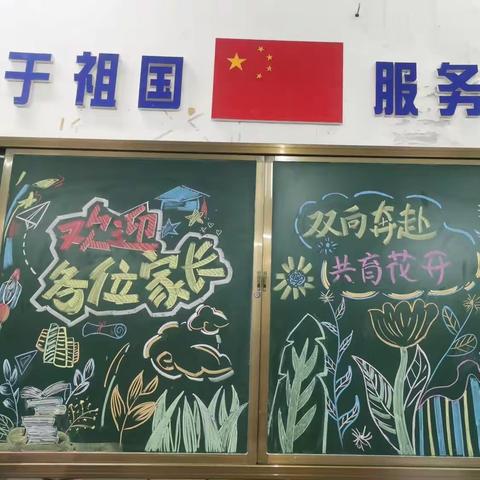 于祖国 服务
欢迎
各位家长
双向奔赴
共育花开